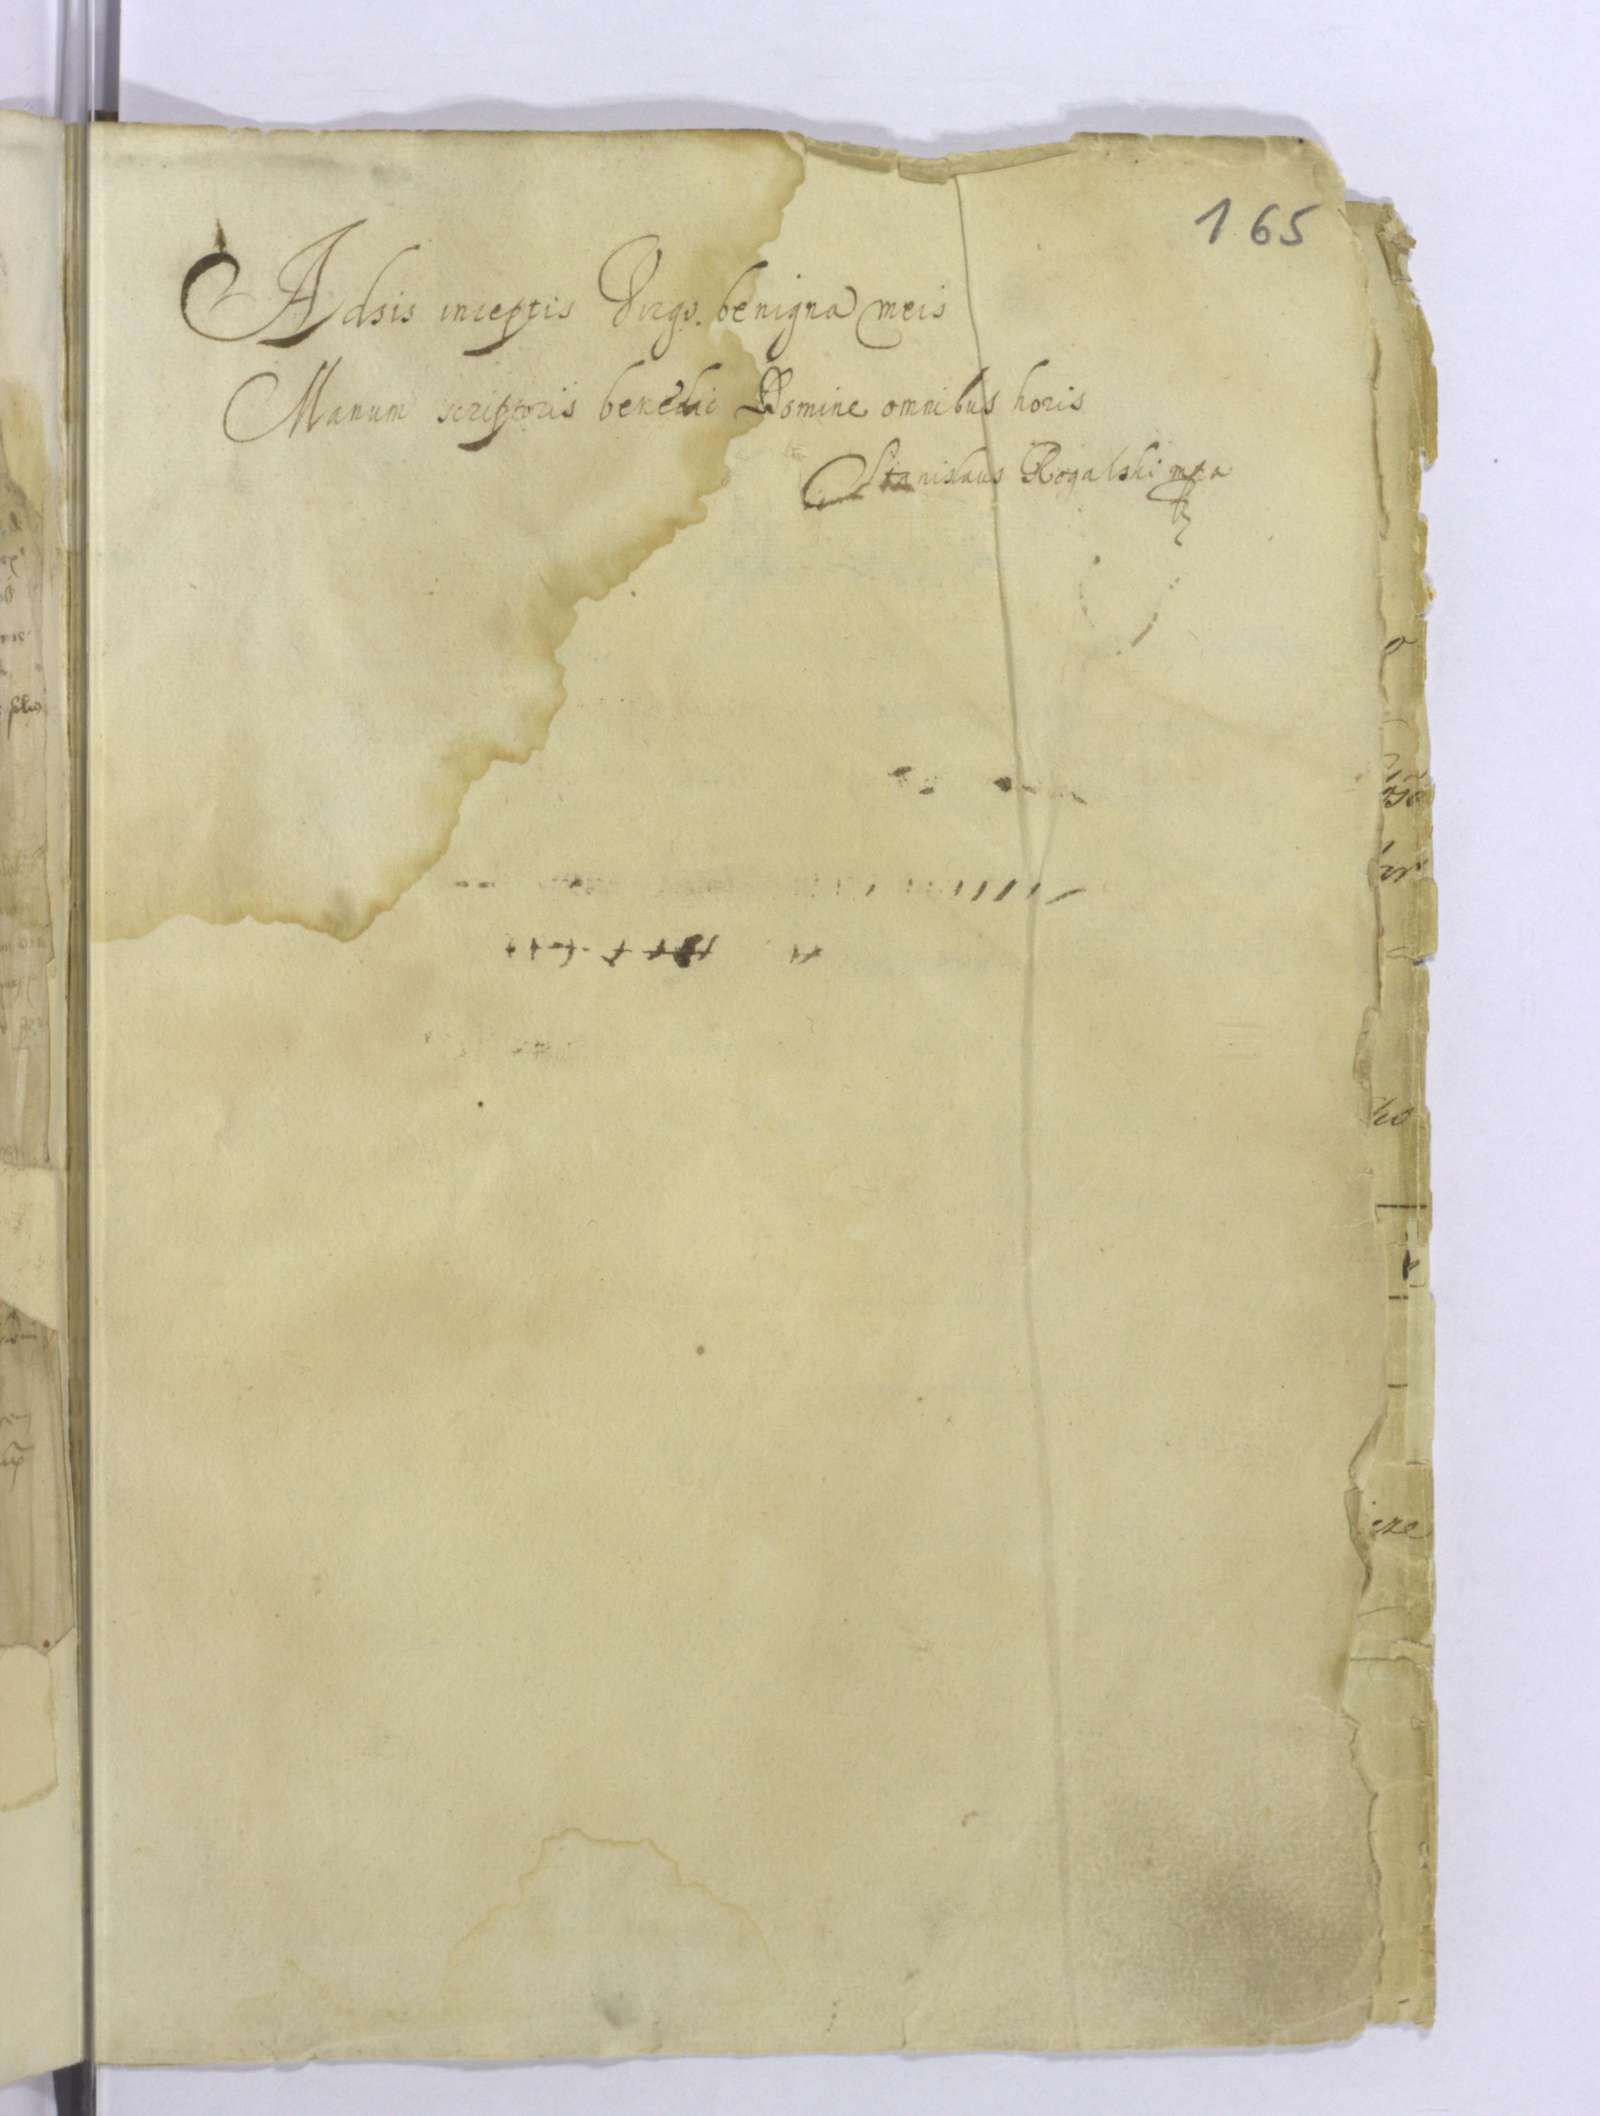 165
Adsis inceptis Virgo benigna meis
Manum scriptoris benedic Domine omnibus horis
Stanislaus Rogalski mpa